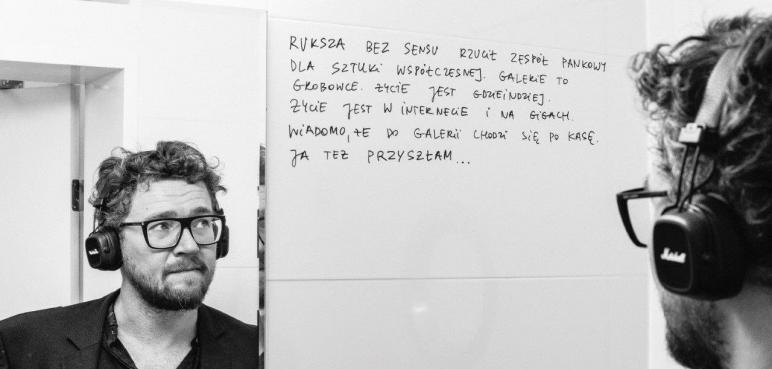 RUKSZA BEZ SENSU RZUCIŁ ZESPÓŁ PANKOWY
DLA SZTUKI WSPÓŁCZESNEJ. GALERIE TO
GROBOWCE. ŻYCIE JEST GDZIEINDZIEJ.
ŻYCIE JEST W INTERNECIE I NA GIGACH.
WIADOMO, ŻE DO GALERII CHODZI SIĘ PO KASĘ.
JA TEŻ PRZYSZŁAM...
Marshall